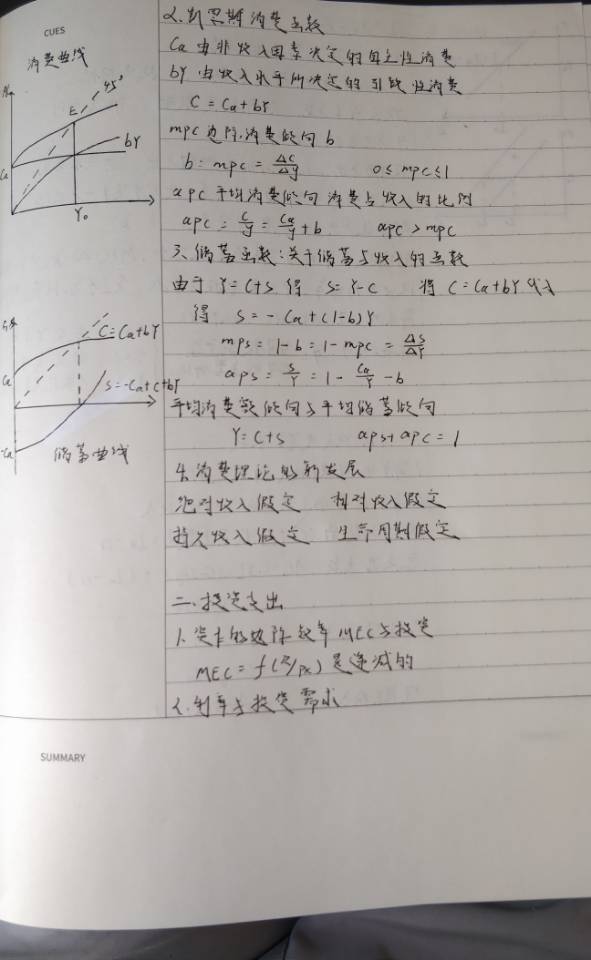 CUES
消费曲线
45°
E
bY
Ca
Y₀
C=Ca+bY
Ca
S=-Ca+(+bY
-Ca
储蓄曲线
2.凯恩斯消费函数
Ca 由非收入因素决定的自主性消费
bY 由收入水平所决定的引致性消费
C = Ca+bY
mpc 边际消费倾向 b
b = mpc = ΔC/Δy 0≤mpc≤1
apc 平均消费倾向 消费占收入的比例
apc = C/y = Ca/y + b apc > mpc
3.储蓄函数:关于储蓄与收入的函数
由于 Y=C+S 得 S=Y-C 将 C=Ca+bY 代入
得 S = -Ca+(1-b)Y
mps = 1-b = 1-mpc = ΔS/ΔY
aps = S/Y = 1 - Ca/Y - b
平均消费倾向与平均储蓄倾向
Y=C+S aps+apc=1
4.消费理论的新发展
绝对收入假定 相对收入假定
持久收入假定 生命周期假定
二.投资支出
1.资本的边际效率 MEC与投资
MEC = f(R/Pk) 是递减的
2.利率与投资需求
SUMMARY